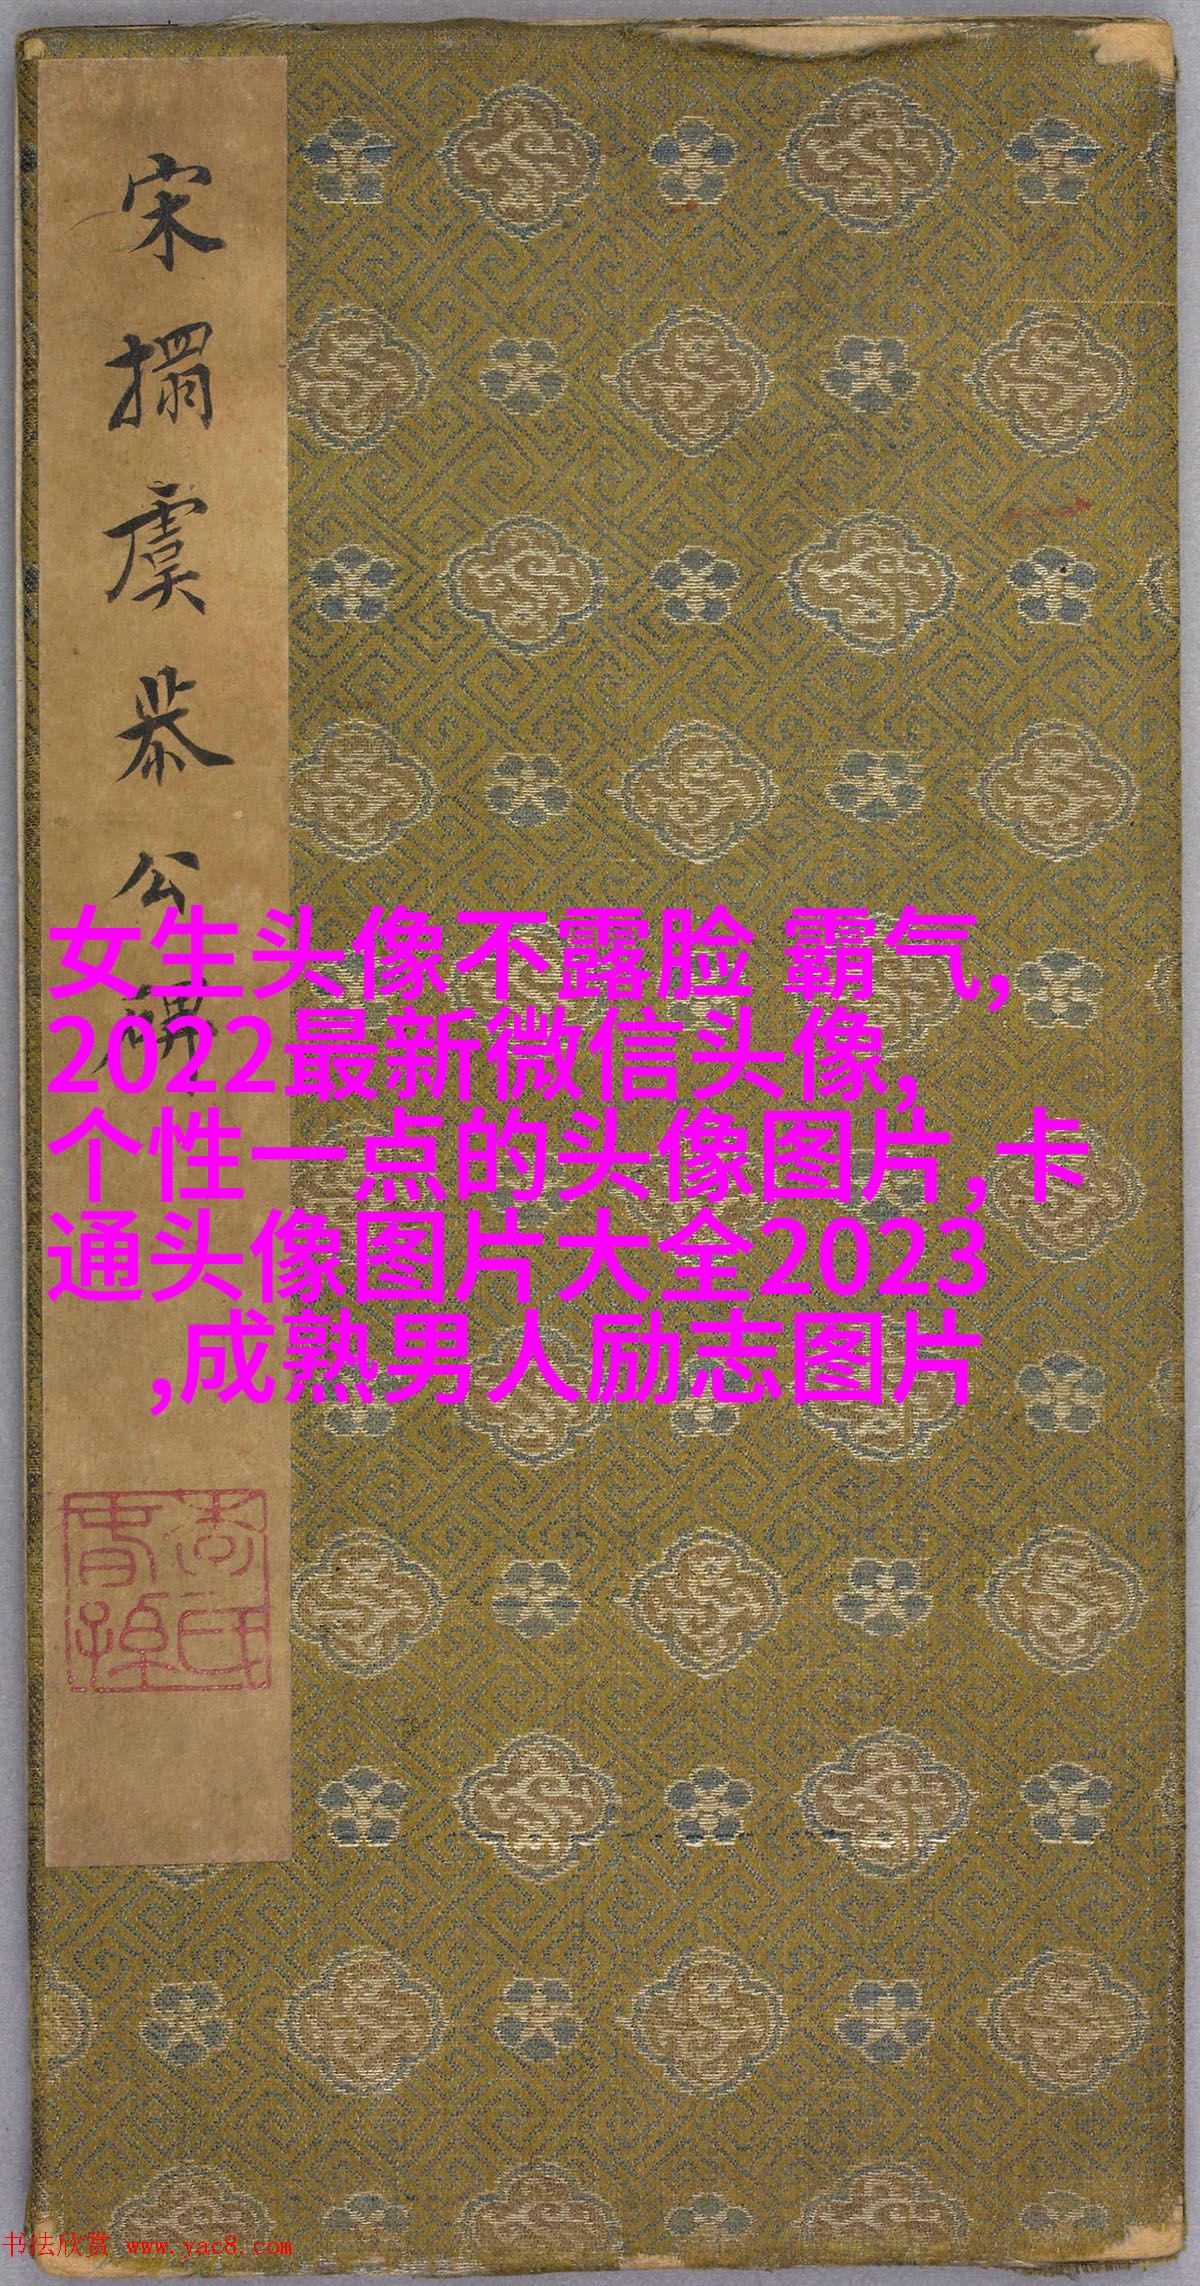 宋搨虞恭公碑
女生头像不露脸 霸气,
2022最新微信头像,
个性一点的头像图片,卡
通头像图片大全2023
,成熟男人励志图片
书法欣赏 www.yac8.com